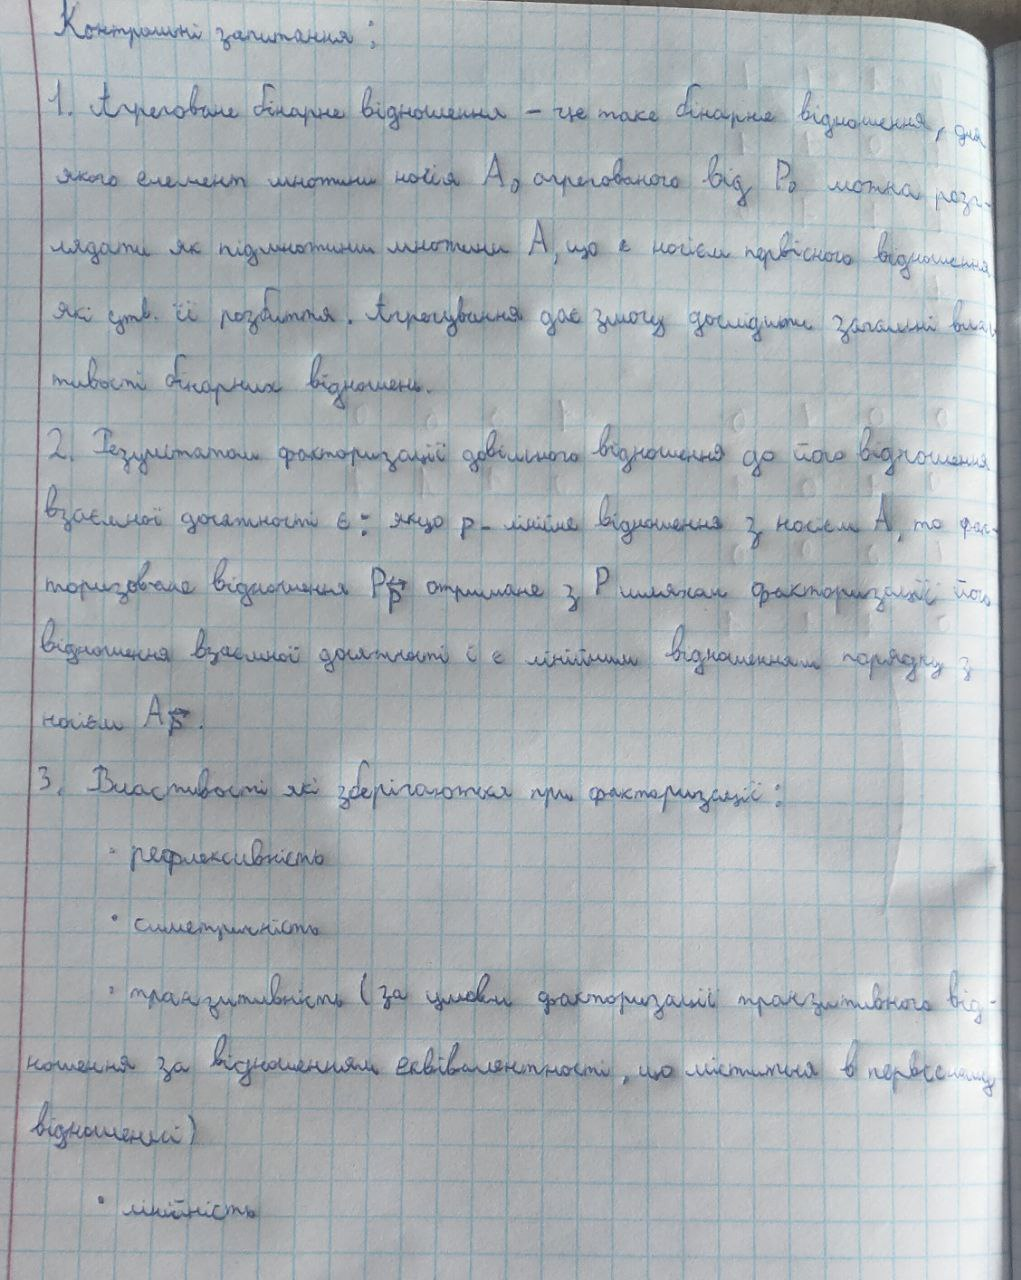 Контрольні запитання:
1. Агреговане бінарне відношення – це таке бінарне відношення, для
якого елемент множини носія A₀ агрегованого від P₀ можна розг-
лядати як підмножини множини A, що є носієм первісного відношення
які утв. її розбиття. Агрегування дає змогу дослідити загальні влас
тивості бінарних відношень.
2. Результатом факторизації довільного відношення до його відношення
взаємної досяжності є: якщо р - лінійне відношення з носієм A, то фак-
торизоване відношення P отримане з P шляхом факторизації його
відношення взаємної досяжності і є лінійним відношенням порядку з
носієм A
3. Властивості які зберігаються при факторизації:
· рефлексивність
· симетричність
· транзитивність (за умови факторизації транзитивного від-
ношення за відношенням еквівалентності, що міститься в первісному
відношенні)
· лінійність